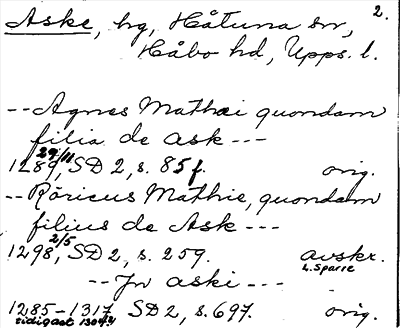 2.
Aske, hg, Håtuna sn,
Håbo hd, Upps. l.
-- Agnes Mathei quondam
filia de Ask ---
1289 29/11, SD 2, s. 85 f. orig.
-- Röricus Mathie, quondam
filius de Ask ---
1298 2/5, SD 2, s. 259. avskr.
L. Sparre
-- Jn aski ---
1285-1317 SD 2, s. 697. orig.
tidigast 1304